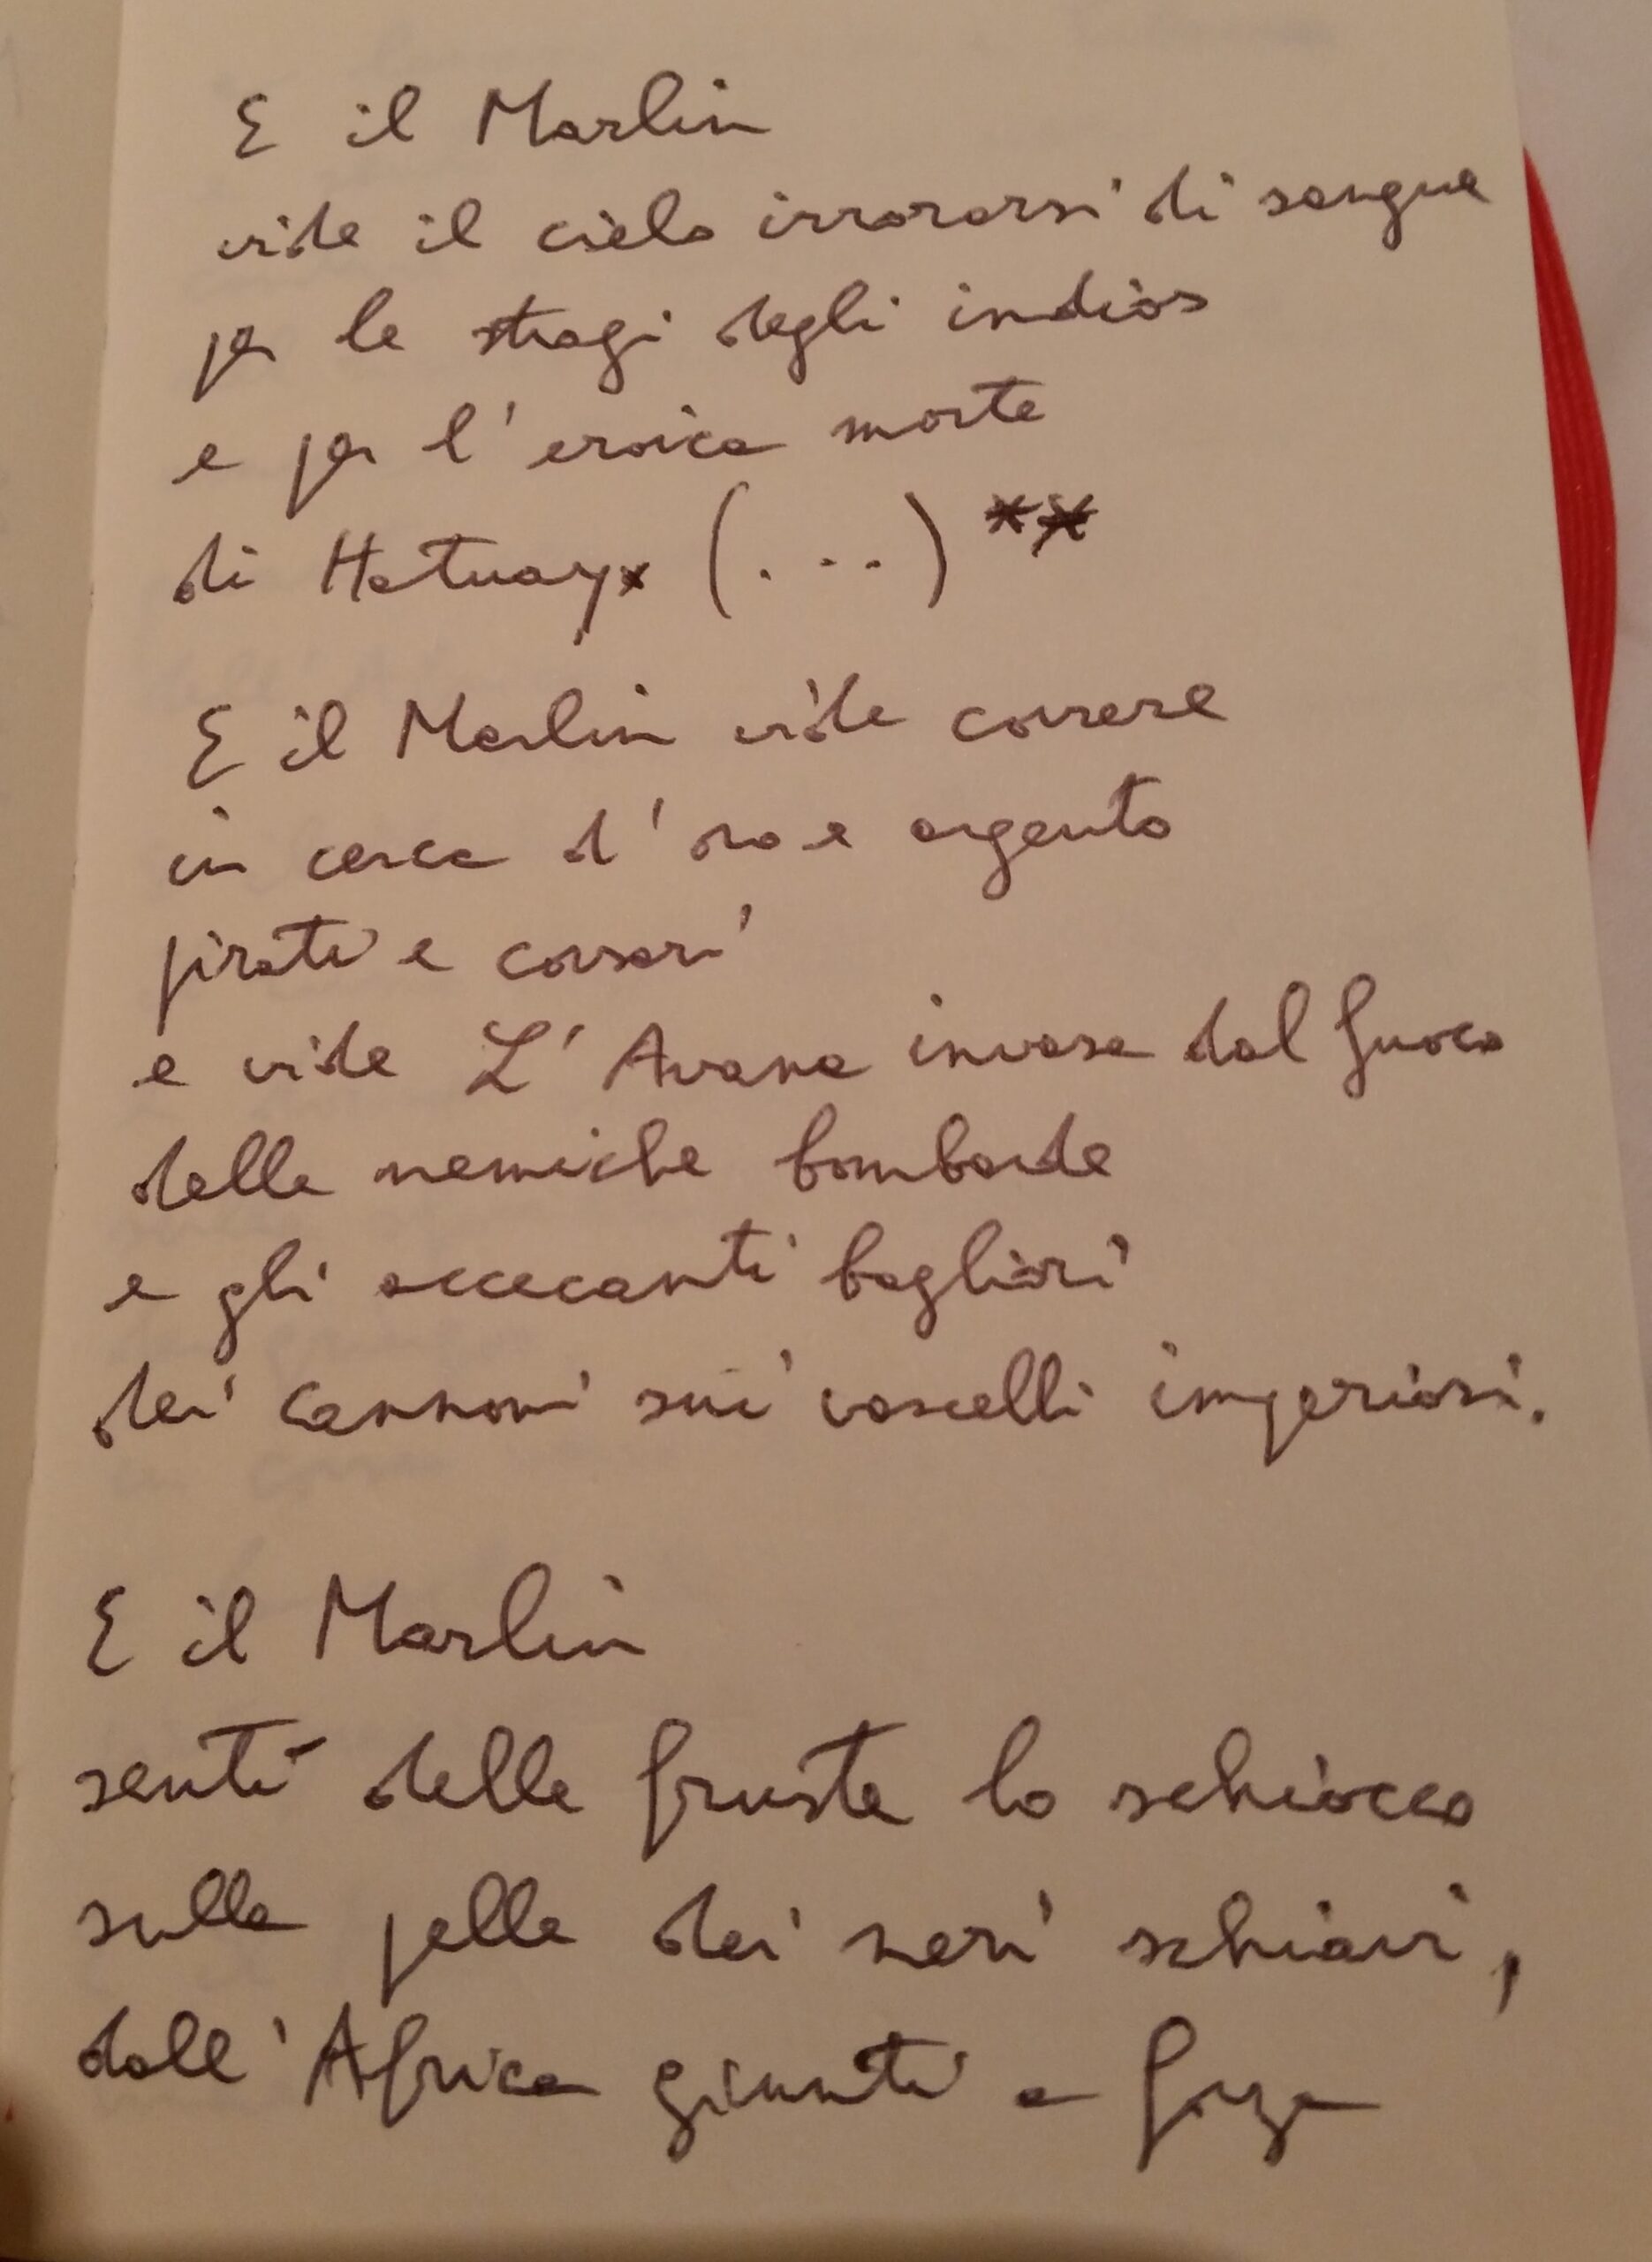 E il Marlin
vide il cielo irrorarsi di sangue
per le stragi degli indios
e per l'eroica morte
di Hatuay* (...) **
E il Marlin vide correre
in cerca d'oro e argento
pirati e corsari
e vide L'Avana invasa dal fuoco
delle nemiche bombarde
e gli accecanti bagliori
dei cannoni sui vascelli imperiosi.
E il Marlin
sentì delle fruste lo schiocco
sulla pelle dei neri schiavi,
dall'Africa giunti a forza